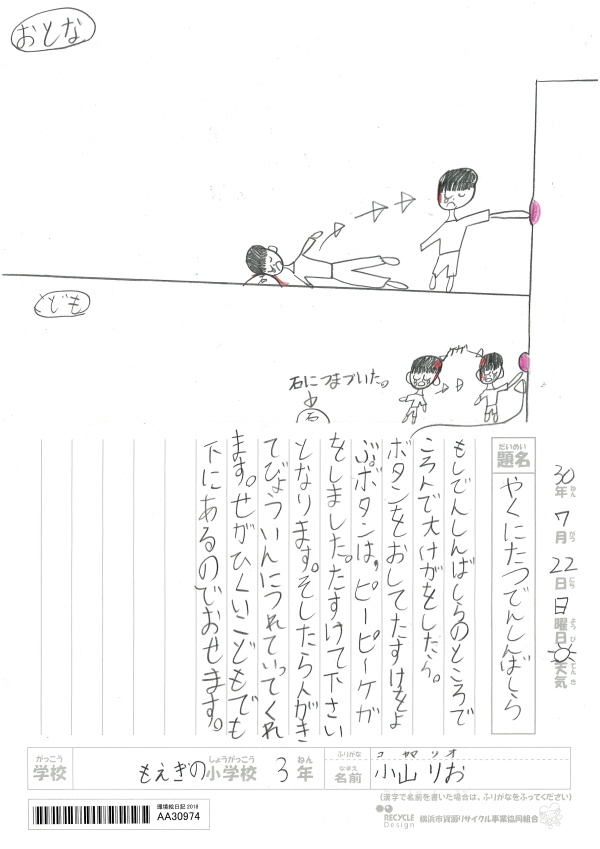 おとな
こども
ケガ
石につまづいた。
石
30年ねん
7月がつ
22日にち
日曜日ようび
天気てんき
だいめい
題名
やくにたつでんしんばしら
もしでんしんばしらのところで
ころんで大けがをしたら。
ボタンをおしてたすけをよ
ぶ。ボタンは、ピーピーケガ
をしました。たすけて下さい
となります。そしたら人がき
てびょういんにつれていってくれ
ます。せがひくいこどもでも
下にあるのでおせます。
がっこう
学校
もえぎの小学校
しょうがっこう
3年
ねん
ふりがな
コヤマリオ
なまえ
名前
小山りお
(漢字で名前を書いた場合は、ふりがなをふってください)
環境絵日記2018
AA30974
RECYCLE Design
横浜市資源リサイクル事業協同組合